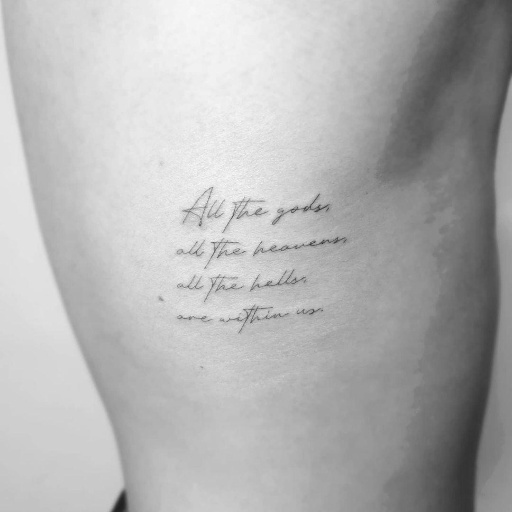 All the gods,
all the heavens,
all the hells,
are within us.